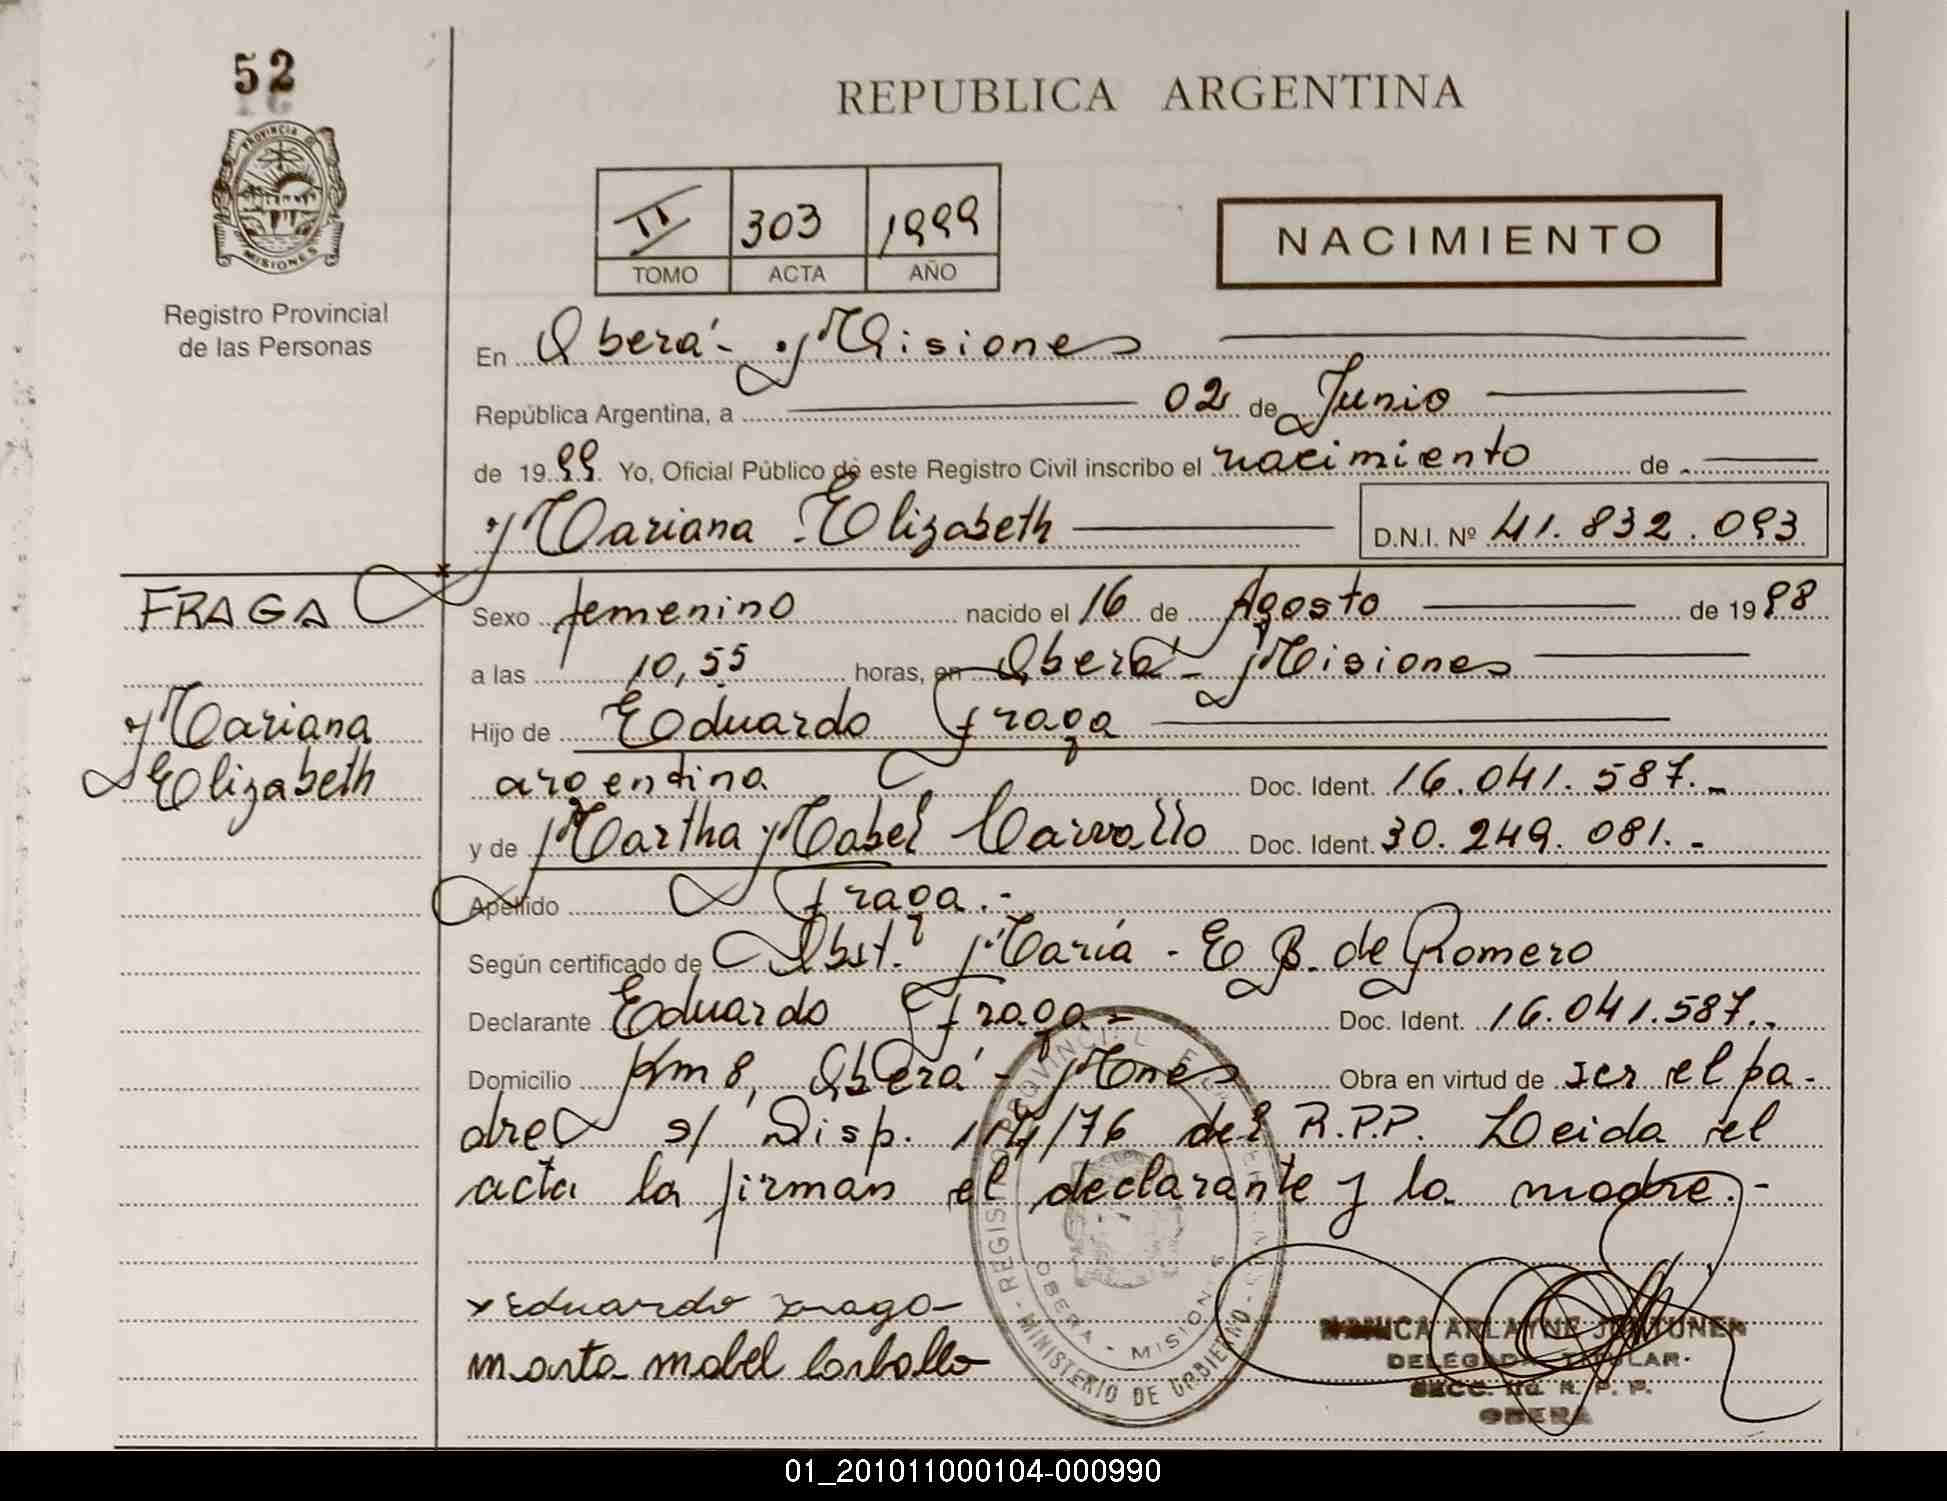 52
REPUBLICA ARGENTINA
PROVINCIA
MISIONES
II 303 1999
TOMO ACTA AÑO
NACIMIENTO
Registro Provincial
de las Personas
En Oberá - Misiones
República Argentina, a 02 de Junio
de 1999. Yo, Oficial Público de este Registro Civil inscribo el nacimiento de
Mariana Elizabeth D.N.I. Nº 41.832.093
FRAGA
Mariana
Elizabeth
Sexo femenino nacido el 16 de Agosto de 1998
a las 10,55 horas, en Oberá - Misiones
Hijo de Eduardo Fraga
argentina Doc. Ident. 16.041.587.-
y de Martha Mabel Carvallo Doc. Ident. 30.249.081.-
Apellido Fraga.-
Según certificado de Obst. María - E B. de Romero
Declarante Eduardo Fraga - Doc. Ident. 16.041.587.-
Domicilio Km 8, Oberá - Mnes Obra en virtud de ser el pa-
dre s/ Disp. /76 del R.P.P. Leida el
acta la firman el declarante y la madre.-
x Eduardo Fraga
marta mabel Carballo
OBERA - MISIONES
MINISTERIO DE GOBIERNO
MONICA ARLAYNE
DELEGADA TITULAR
SECC. R. P. P.
OBERA
01_201011000104-000990